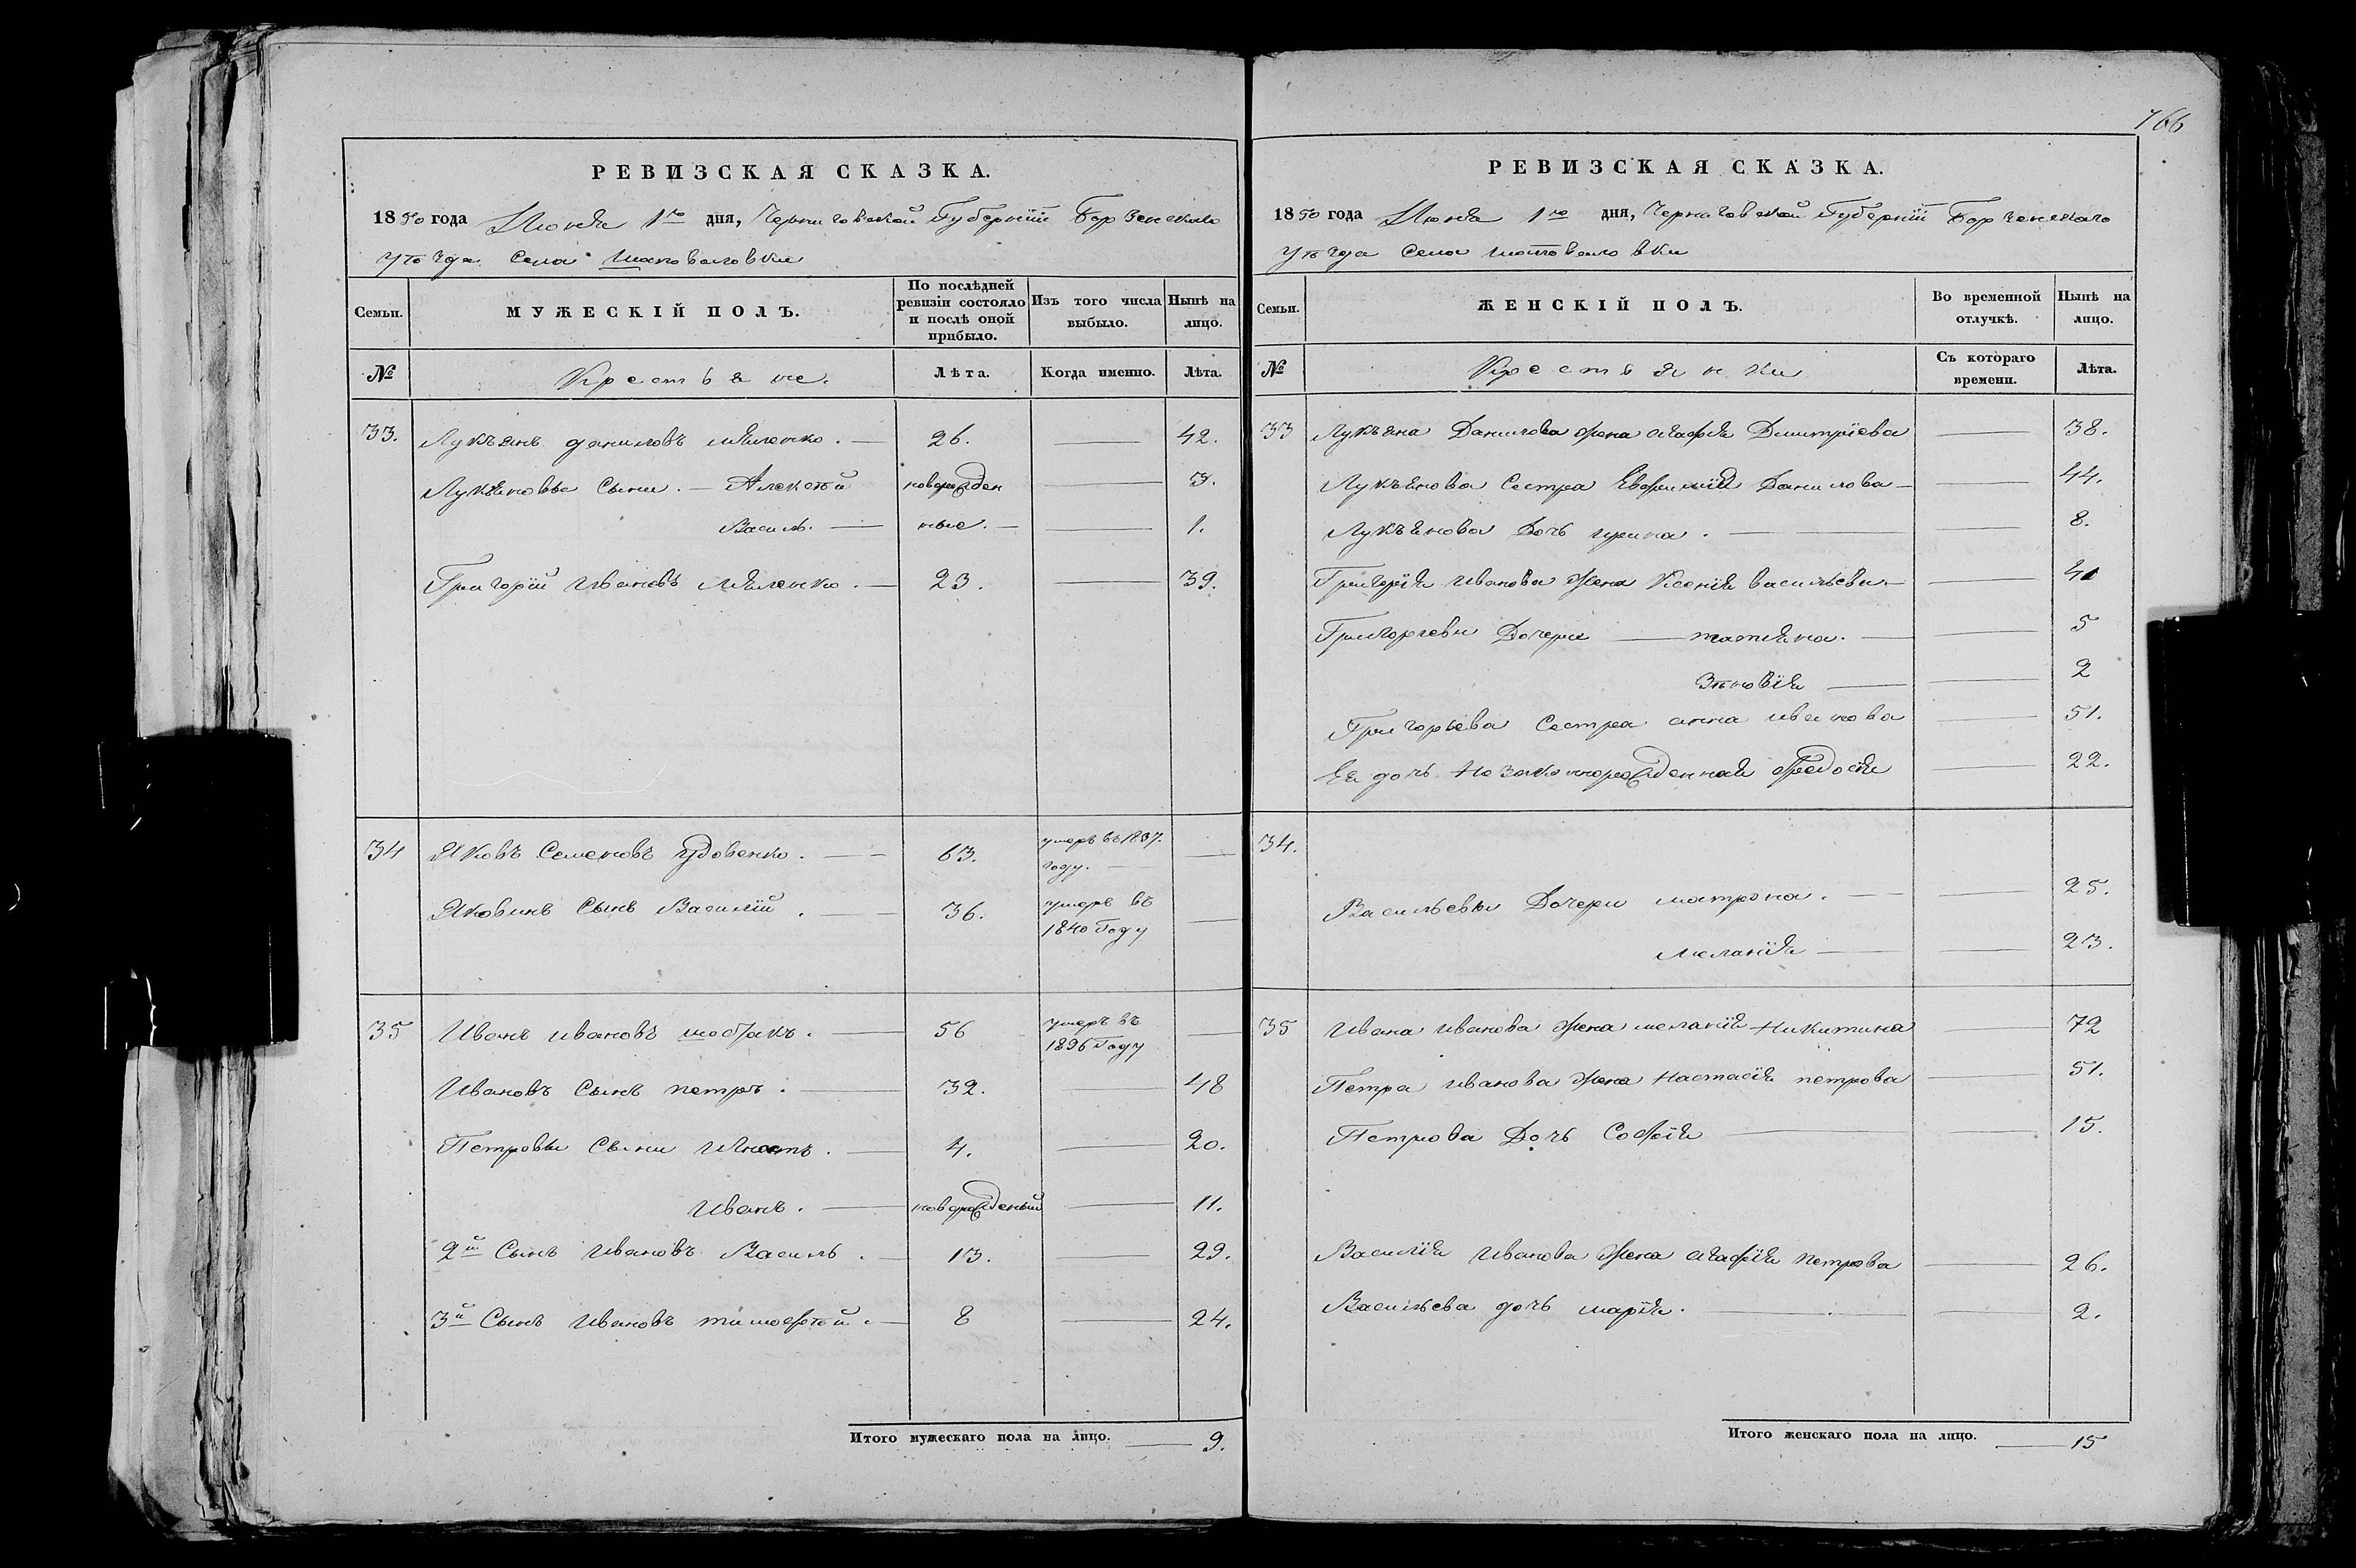 766
РЕВИЗСКАЯ СКАЗКА.
1850 года Июня 1го дня, Черниговской Губерніи Борзенскаго
уѣзда Села Шаповаловки
Семьи. МУЖЕСКІЙ ПОЛЪ. По послѣдней ревизіи состояло и послѣ оной прибыло. Изъ того числа выбыло. Нынѣ на лицо.
№ Крестьяне. Лѣта. Когда именно. Лѣта.
33. Лукьянъ даниловъ — 26. — 42.
Лукьяновы Сыни. — Алексѣй новорожден — 3.
Василь. — ные. — 1.
Григорій Ивановъ — 23. — 39.
34 Яковъ Семеновъ — 63. умеръ въ 1837. году. —
Яковинъ Сынъ Василій. — 36. умеръ въ 1840 Году —
35 Иванъ ивановъ — 56 умеръ въ Году —
Ивановъ Сынъ петръ. — 32. — 48
Петровы Сыни Игнатъ. — 4. — 20.
Иванъ. — новорожденый — 11.
2й Сынъ Ивановъ Василь. — 13. — 29.
3й Сынъ Ивановъ тимофѣй. — 8 — 24.
Итого мужескаго пола на лицо. — 9.
РЕВИЗСКАЯ СКАЗКА.
1850 года Июня 1го дня, Черниговской Губерніи Борзенскаго
уѣзда Села шаповаловки
Семьи. ЖЕНСКІЙ ПОЛЪ. Во временной отлучкѣ. Нынѣ на лицо.
№ Крестьянки Съ котораго времени. Лѣта.
33 Лукьяна Данилова жена агафія Дмитріева — 38.
Лукьянова Сестра Евфимія Данилова — 44.
Лукьянова Дочь ирина. — 8.
Григорія Иванова жена Ксенія васильева. — 41
Григорьевы Дочери — татьяна. — 5
Зѣновія — 2
Григорьева Сестра анна иванова — 51.
Ея дочь Незаконнорожденная Федосія — 22.
34.
Васильевы Дочери матрона. — 25.
меланія — 23.
35 Ивана иванова жена меланія Никитина — 72
Петра иванова жена Настасія петрова — 51.
Петрова Дочь Софія — 15.
Василія Иванова жена агафія петрова — 26.
Васильева дочь марія. — 2.
Итого женскаго пола на лицо. — 15